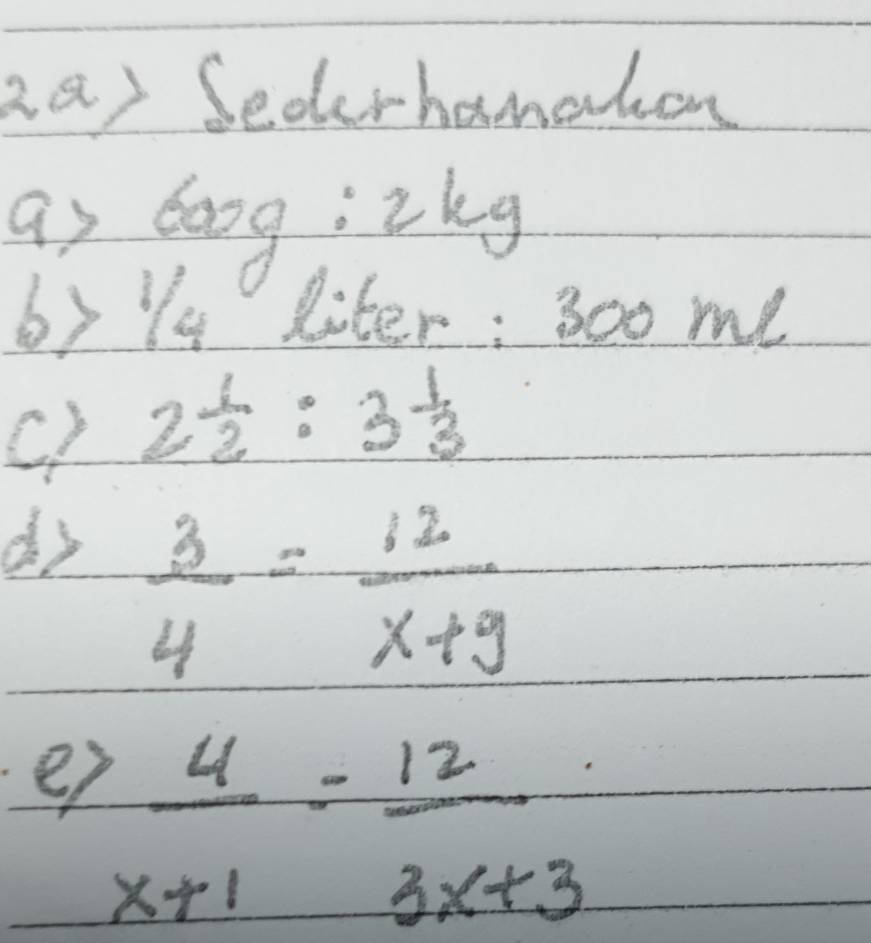 2a> Sederhanakan
a> 600g : 2 kg
b> 1/4 liter : 300 ml
c> 2 1/2 : 3 1/3
d> 3/4 = 12/x+9
e> 4/x+1 = 12/3x+3